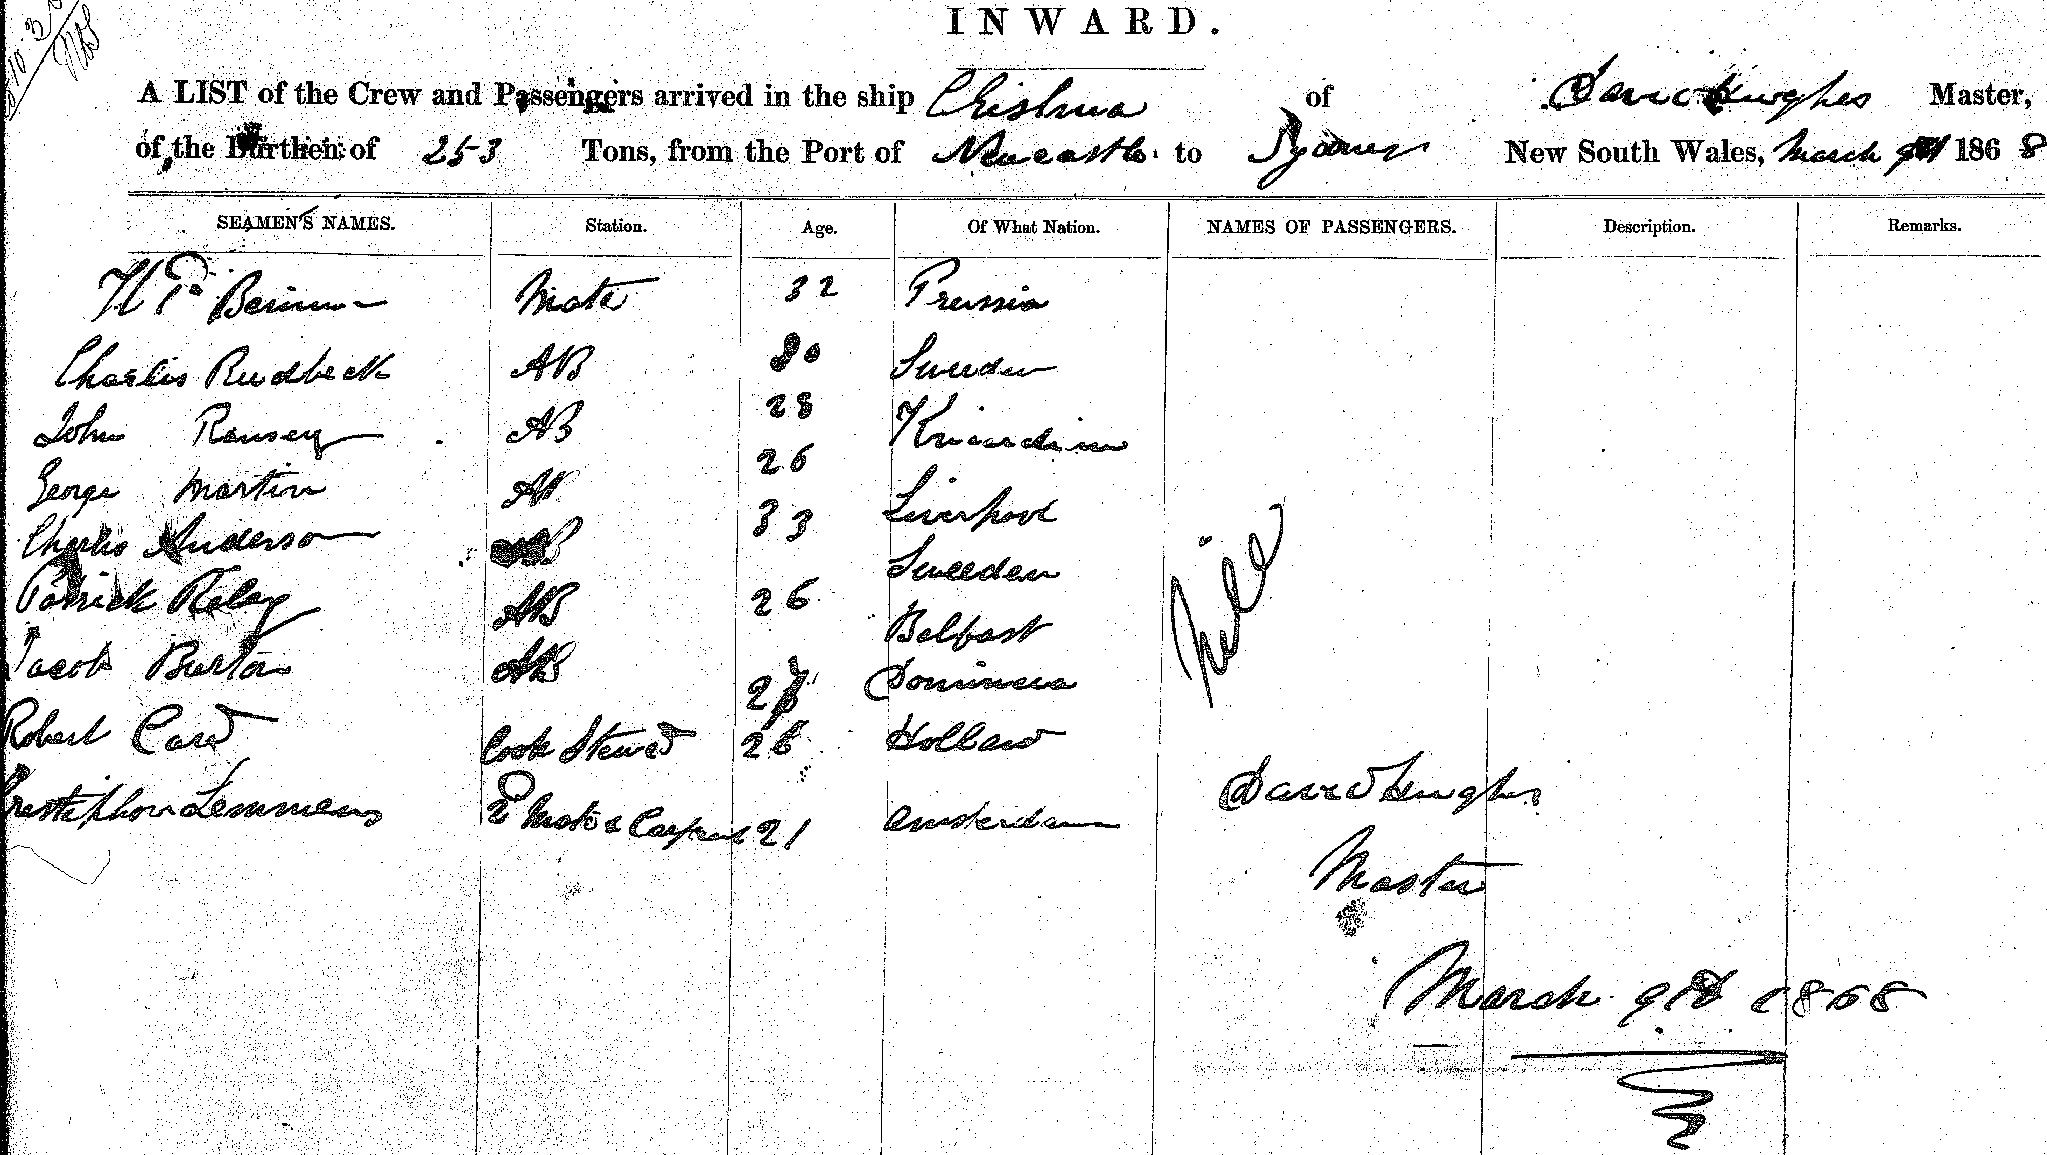 INWARD.
A LIST of the Crew and Passengers arrived in the ship Chishua of David Hughes Master,
of the Burthen of 253 Tons, from the Port of Newcastle to Sydney New South Wales, March 9th 1868
SEAMEN'S NAMES. Station. Age. Of What Nation. NAMES OF PASSENGERS. Description. Remarks.
Mate 32 Prussia
Charles Rudbeck AB 30 Sweeden
John Ramsey AB 28
George Martin AB 26 Liverpool
Charles Anderson AB 33 Sweeden
Patrick Relay AB 26 Belfast
Jacob Burton AB Dominica
Robert Card Cook Steward 26 Holland
Lemmens 2 Mate & Carpent 21 Amsterdam
Nill
David Hughes
Master
March 9th 1868